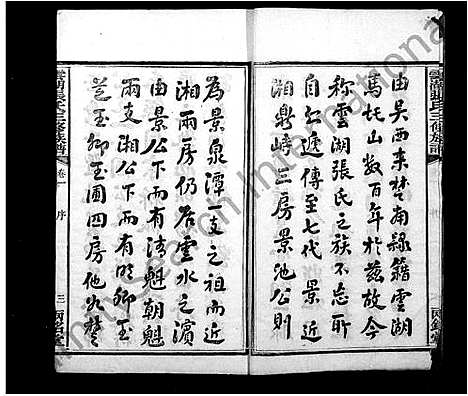 由吴西来楚南隸籍雲湖
馬托山数百年於茲故今
称雲湖張氏之族不忘所
自仁遞傳至七代景近
湘鼎峙三房景池公則
雲湖張氏三修族譜
為景泉潭一支之祖而近
湘兩房仍居雲水之濱
由景公下而有清魁朝魁
兩支湘公下而有明卿玉
芝玉卿玉圃四房他如楚
雲湖張氏三修族譜
卷一
序
三
兩銘堂